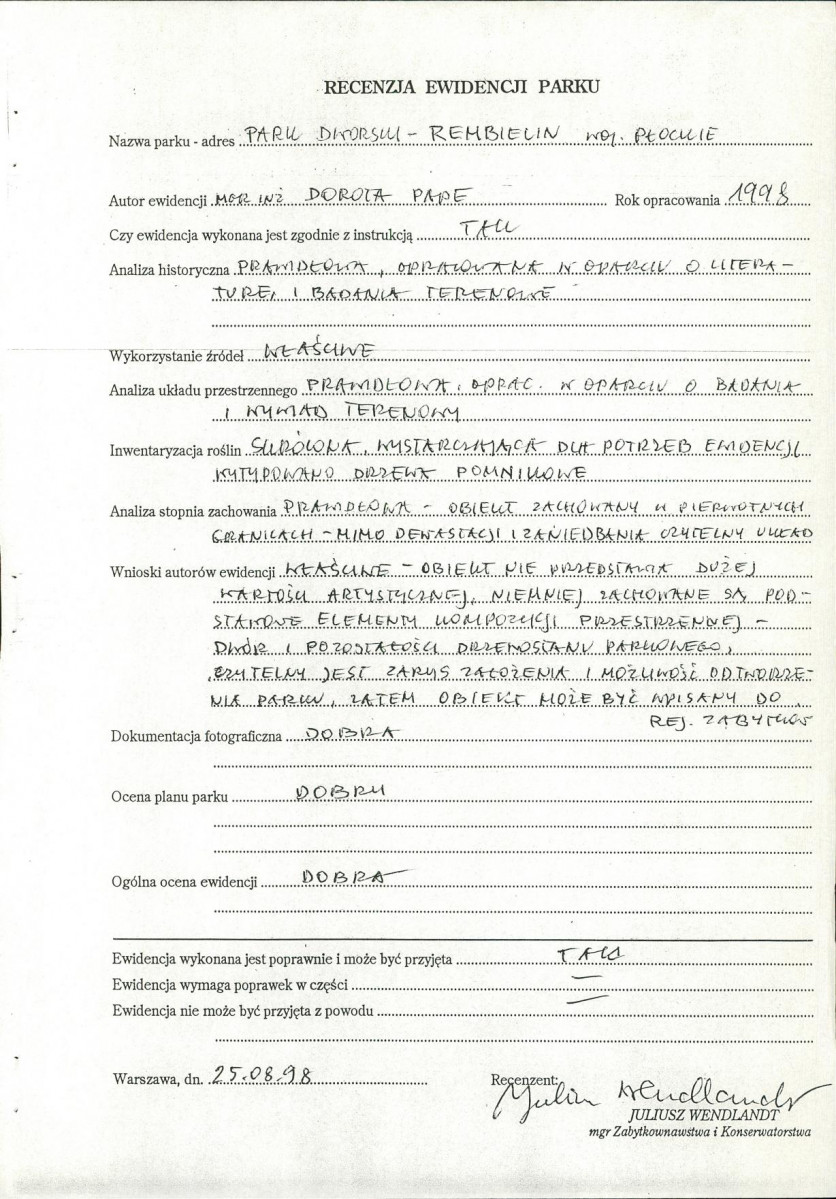 RECENZJA EWIDENCJI PARKU
Nazwa parku - adres PARK DWORSKI - REMBIELIN woj. PŁOCKIE
Autor ewidencji MGR INŻ DOROTA PAPE Rok opracowania 1998
Czy ewidencja wykonana jest zgodnie z instrukcją TAK
Analiza historyczna PRAWIDŁOWA, OPRACOWANA W OPARCIU O LITERA-
TURĘ, I BADANIA TERENOWE
Wykorzystanie źródeł WŁAŚCIWE
Analiza układu przestrzennego PRAWIDŁOWA, OPRAC. W OPARCIU O BADANIA
I WYWIAD TERENOWY
Inwentaryzacja roślin SKRÓCONA, WYSTARCZAJĄCA DLA POTRZEB EWIDENCJI,
WYTYPOWANO DRZEWA POMNIKOWE
Analiza stopnia zachowania PRAWIDŁOWA - OBIEKT ZACHOWANY W PIERWOTNYCH
GRANICACH - MIMO DEWASTACJI I ZANIEDBANIA CZYTELNY UKŁAD
Wnioski autorów ewidencji WŁAŚCIWE - OBIEKT NIE PRZEDSTAWIA DUŻEJ
WARTOŚCI ARTYSTYCZNEJ, NIEMNIEJ ZACHOWANE SĄ POD-
STAWOWE ELEMENTY KOMPOZYCJI PRZESTRZENNEJ -
DWÓR I POZOSTAŁOŚCI DRZEWOSTANU PARKOWEGO,
CZYTELNY JEST ZARYS ZAŁOŻENIA I MOŻLIWOŚĆ ODTWORZE-
NIA PARKU, ZATEM OBIEKT MOŻE BYĆ WPISANY DO
REJ. ZABYTKÓW
Dokumentacja fotograficzna DOBRA
Ocena planu parku DOBRY
Ogólna ocena ewidencji DOBRA
Ewidencja wykonana jest poprawnie i może być przyjęta TAK
Ewidencja wymaga poprawek w części —
Ewidencja nie może być przyjęta z powodu —
Warszawa, dn. 25.08.98 Recenzent:
Juliusz Wendlandt
JULIUSZ WENDLANDT
mgr Zabytkownawstwa i Konserwatorstwa